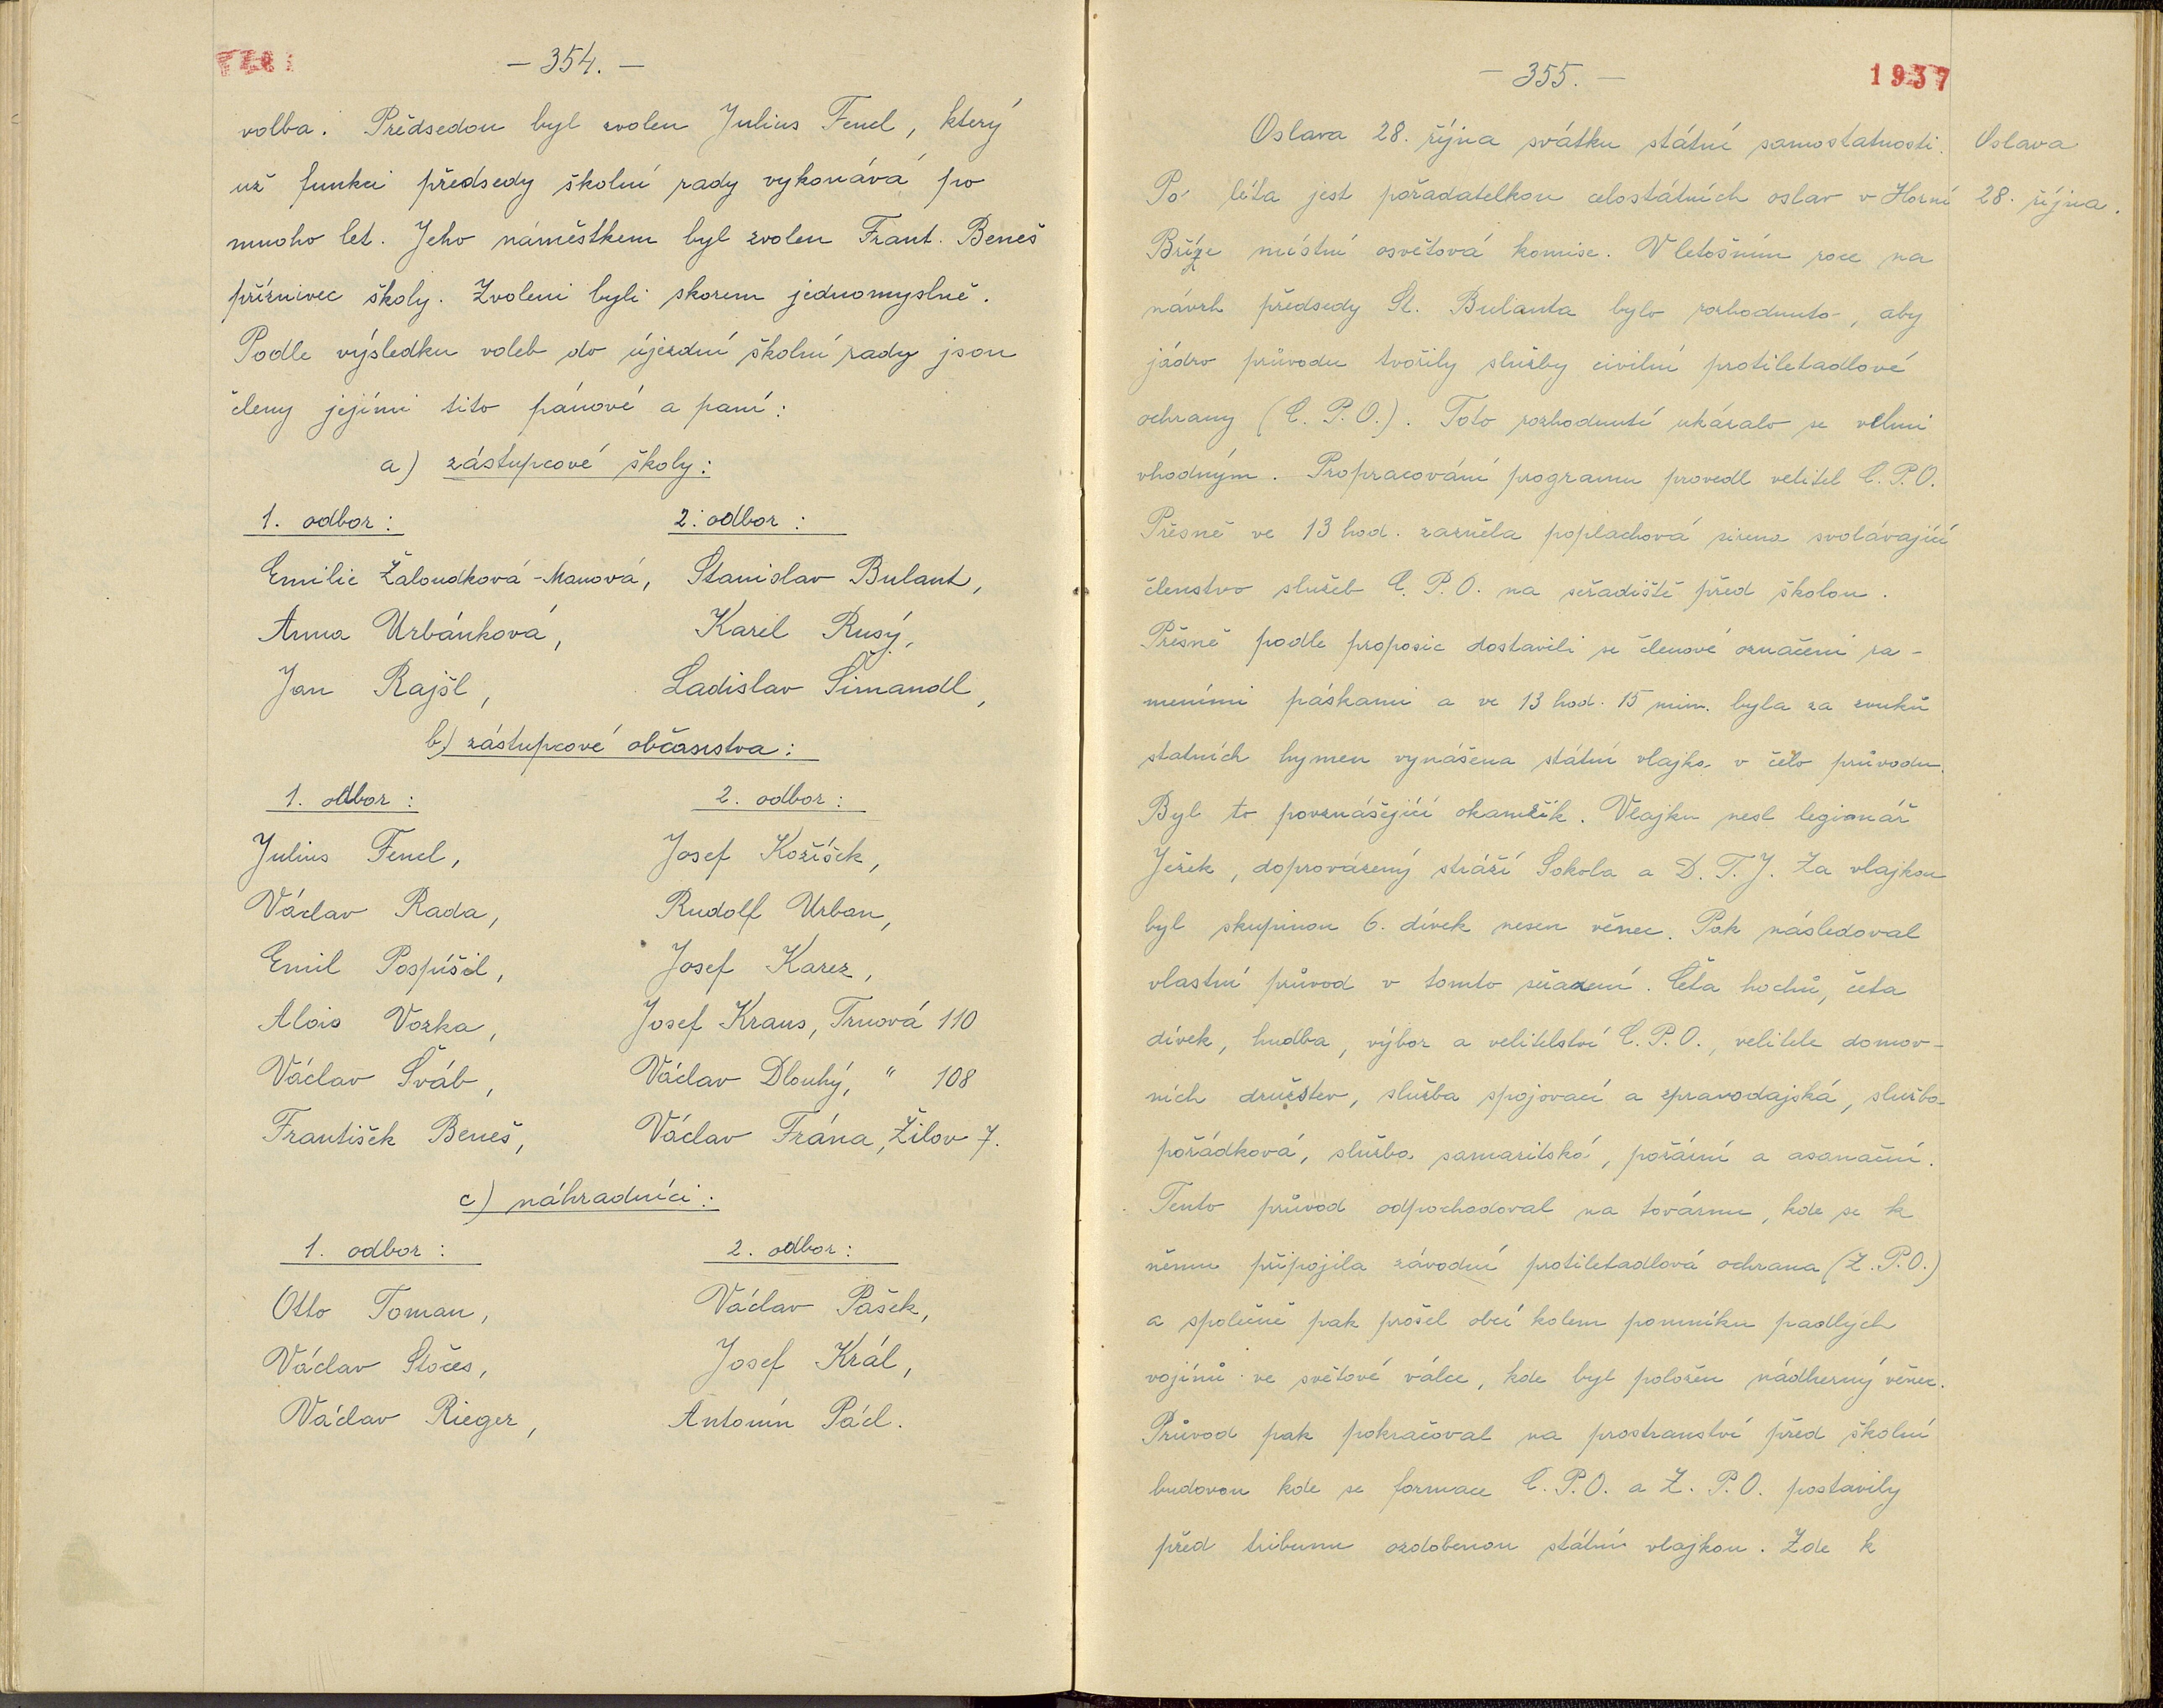 — 354. —
volba. Předsedou byl zvolen Julius Fencl, který
už funkci předsedy školní rady vykonává po
mnoho let. Jeho náměstkem byl zvolen Frant. Beneš
příznivec školy. Zvoleni byli skorem jednomyslně.
Podle výsledku voleb do újezdní školní rady jsou
členy jejími tito pánové a paní:
a) zástupcové školy:
1. odbor: 2. odbor:
Emilie Žaloudková-Manová, Stanislav Bulant,
Anna Urbánková, Karel Rusý,
Jan Rajšl, Ladislav Šimandl,
b) zástupcové občanstva:
1. odbor: 2. odbor:
Julius Fencl, Josef Kožíšek,
Václav Rada, Rudolf Urban,
Emil Pospíšil, Josef Karez,
Alois Vozka, Josef Kraus, Trnová 110
Václav Šváb, Václav Dlouhý, " 108
František Beneš, Václav Frána, Žilov 7.
c) náhradníci:
1. odbor: 2. odbor:
Otto Toman, Václav Pašek,
Václav Stočes, Josef Král,
Václav Rieger, Antonín Pácl.
— 355. —
1937
Oslava 28. října svátku státní samostatnosti.
Oslava
28. října.
Po léta jest pořadatelkou celostátních oslav v Horní
Bříze místní osvětová komise. V letošním roce na
návrh předsedy St. Bulanta bylo rozhodnuto, aby
jádro průvodu tvořily služby civilní protiletadlové
ochrany (C. P. O.). Toto rozhodnutí ukázalo se velmi
vhodným. Propracování programu provedl velitel C. P. O.
Přesně ve 13 hod. zazněla poplachová sirena svolávající
členstvo služeb C. P. O. na seřadiště před školou.
Přesně podle proposic dostavili se členové označeni ra-
meními páskami a ve 13 hod. 15 min. byla za zvuků
statních hymen vynášena státní vlajka v čelo průvodu.
Byl to povznášející okamžik. Vlajku nesl legionář
Ježek, doprovázený stráží Sokola a D. T. J. Za vlajkou
byl skupinou 6. dívek nesen věnec. Pak následoval
vlastní průvod v tomto seřazení. Četa hochů, četa
dívek, hudba, výbor a velitelství C. P. O., velitele domov-
ních družstev, služba spojovací a zpravodajská, služba
pořádková, služba samaritská, požární a asanační.
Tento průvod odpochodoval na továrnu, kde se k
němu připojila závodní protiletadlová ochrana (Z. P. O.)
a společně pak prošel obcí kolem pomníku padlých
vojínů ve světové válce, kde byl položen nádherný věnec.
Průvod pak pokračoval na prostranství před školní
budovou kde se formace C. P. O. a Z. P. O. postavily
před tribunu ozdobenou státní vlajkou. Zde k